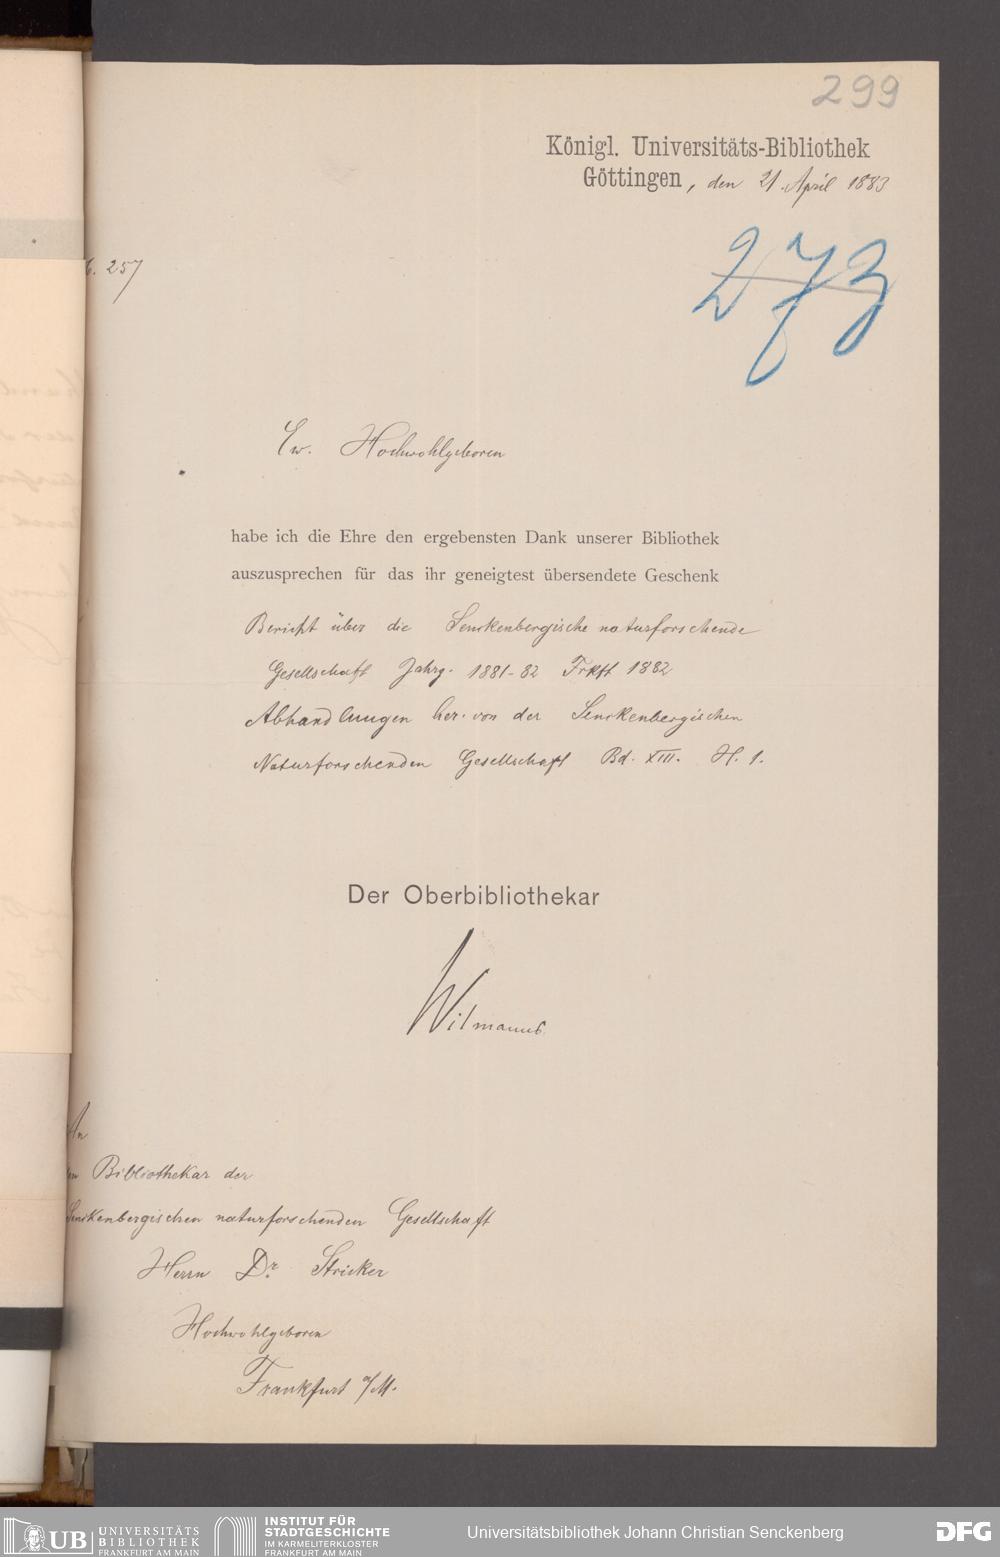 299
Königl. Universitäts-Bibliothek
Göttingen, den 21. April 1883
273
6. 257
Ew. Hochwohlgeboren
habe ich die Ehre den ergebensten Dank unserer Bibliothek
auszusprechen für das ihr geneigtest übersendete Geschenk
Bericht über die Senckenbergische naturforschende
Gesellschaft Jahrg. 1881-82 Frkft 1882
Abhandlungen her. von der Senckenbergischen
Naturforschenden Gesellschaft Bd. XIII. H. 1.
Der Oberbibliothekar
Wilmanns
An
Bibliothekar der
Senckenbergischen naturforschenden Gesellschaft
Herrn Dr. Stricker
Hochwohlgeboren
Frankfurt a/M.
UB UNIVERSITÄTS
BIBLIOTHEK
FRANKFURT AM MAIN
INSTITUT FÜR
STADTGESCHICHTE
IM KARMELITERKLOSTER
FRANKFURT AM MAIN
Universitätsbibliothek Johann Christian Senckenberg
DFG